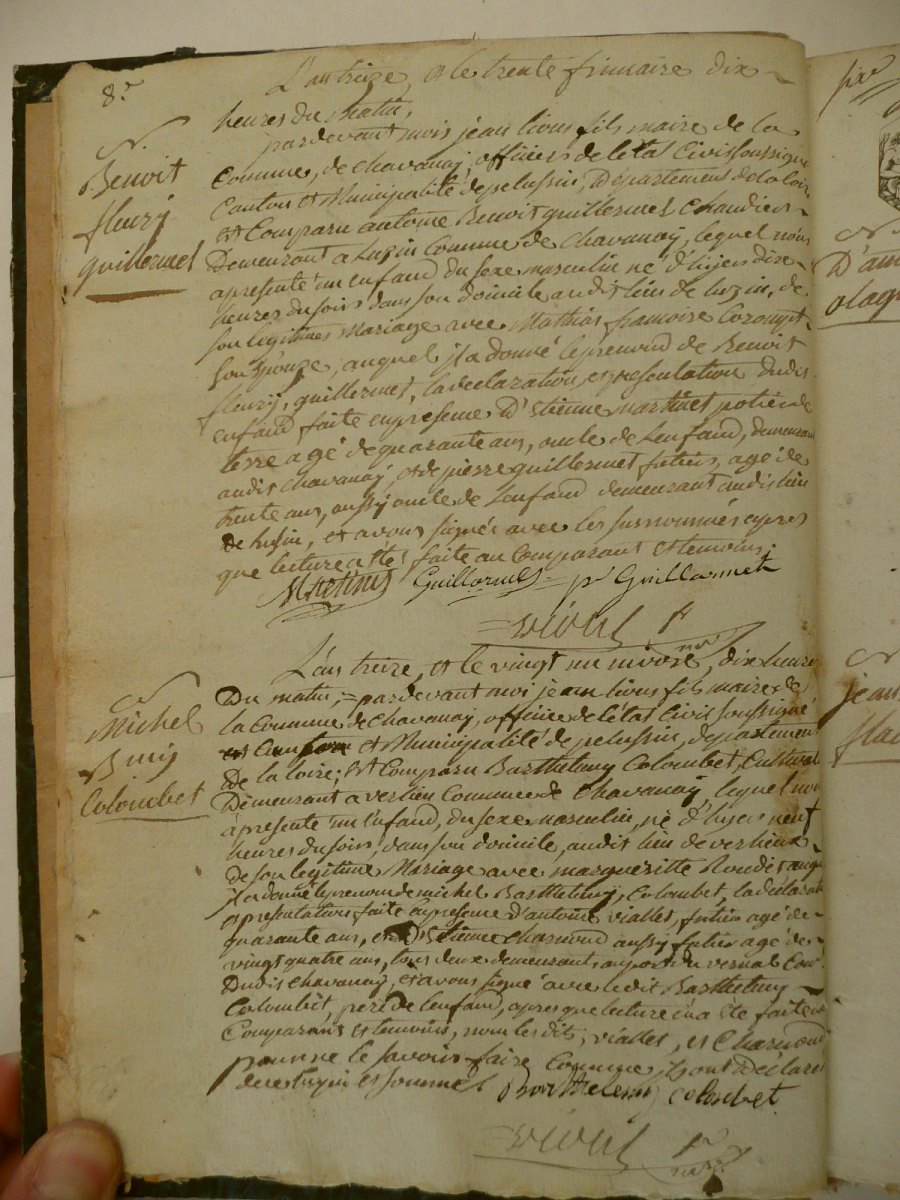 8.e
L'an treize, et le trente frimaire dix
heures du matin,
pardevant mois jean lions fils maire de la
Commune, de chavanaÿ, officiers de létat Civil soussigné
Canton et Municipalité de pelussin, Département de la loire
est Comparu antoine Benoit guillermet Chaudier
Demeurant a Luzin Commune de Chavanaÿ, lequel nous
apresenté un enfand du sexe masculin né d'hÿer dixe
heures du soir dans son domicile audit lieu de luzin, de
son legitimes Mariage avec Mathias francoise
son Epouze, auquel jl a donné le prenond de Benoit
fleurÿ, guillermet, la declaration, et presentation dudit
enfand faite en presense D'Etienne martinet potier de
terre agé de quarante ans, oncle de Lenfand, demeurant
audit chavanaÿ et de pierre guillermet futier, agé de
trente ans, aussÿ oncle de Lenfand demeurant audit lieu
de lusin, et avons signés avec les susnommés apres
que lecture a été faite au Comparant et temoins.
Martinet Guillermet pr Guillarmet
Benoit
fleurÿ
guillermet
L'an treize, et le vingt un nivose, dix heures
Du matin, pardevant moi jean lions fils maire de
la Commune de Chavanaÿ, officier de létat Civil soussigné
et Canton et Municipalité de pelussin, departement
De la loire; est Comparu Barthelemy Colombet, Cultivat
Demeurant a verlieu Commune de Chavanaÿ, lequel nous
à presenté un Enfand, du sexe masculin, né d'hÿer neuf
heures du soir, dans son domicile, audit lieu de verlieux
De son legitime Mariage avec margueritte Roudet auqu
jl a donné le prenom de michel Barthelemy, Colombet, la déclarat
et presentation faite en presense d'antoine vialles, futier agé de
quarante ans, et D'Etienne charmond aussÿ futier agé de
vingt quatre ans, tous deux demeurant au port du vernal Com
Dudit chavanaÿ, et avons signé avec ledit Barthelemy
Colombet, pere de lenfand, apres que lecture en a été faite au
Comparant et temoins, non les dits, vialles, et Charmond
pour ne le savoir faire Comme jls ont Déclaré
de ce requi et sommé Barthelemy colombet
Michel
Colombet
D'am
jean